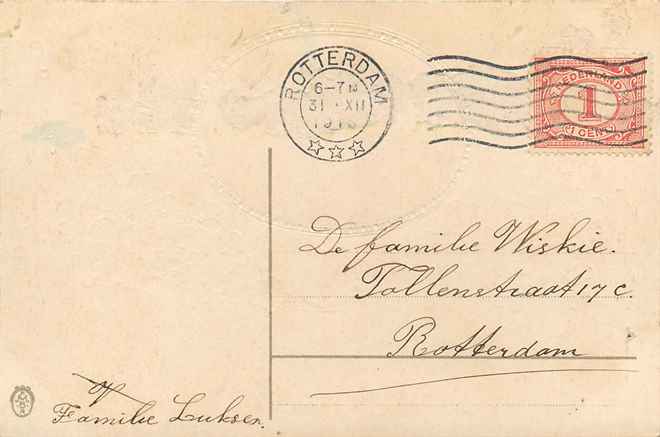 ROTTERDAM
6-7N
31 XII
NEDERLAND
1
(1 CENT)
De familie Wiskie.
Tollenstraat 17 c.
Rotterdam
Familie Lukser.